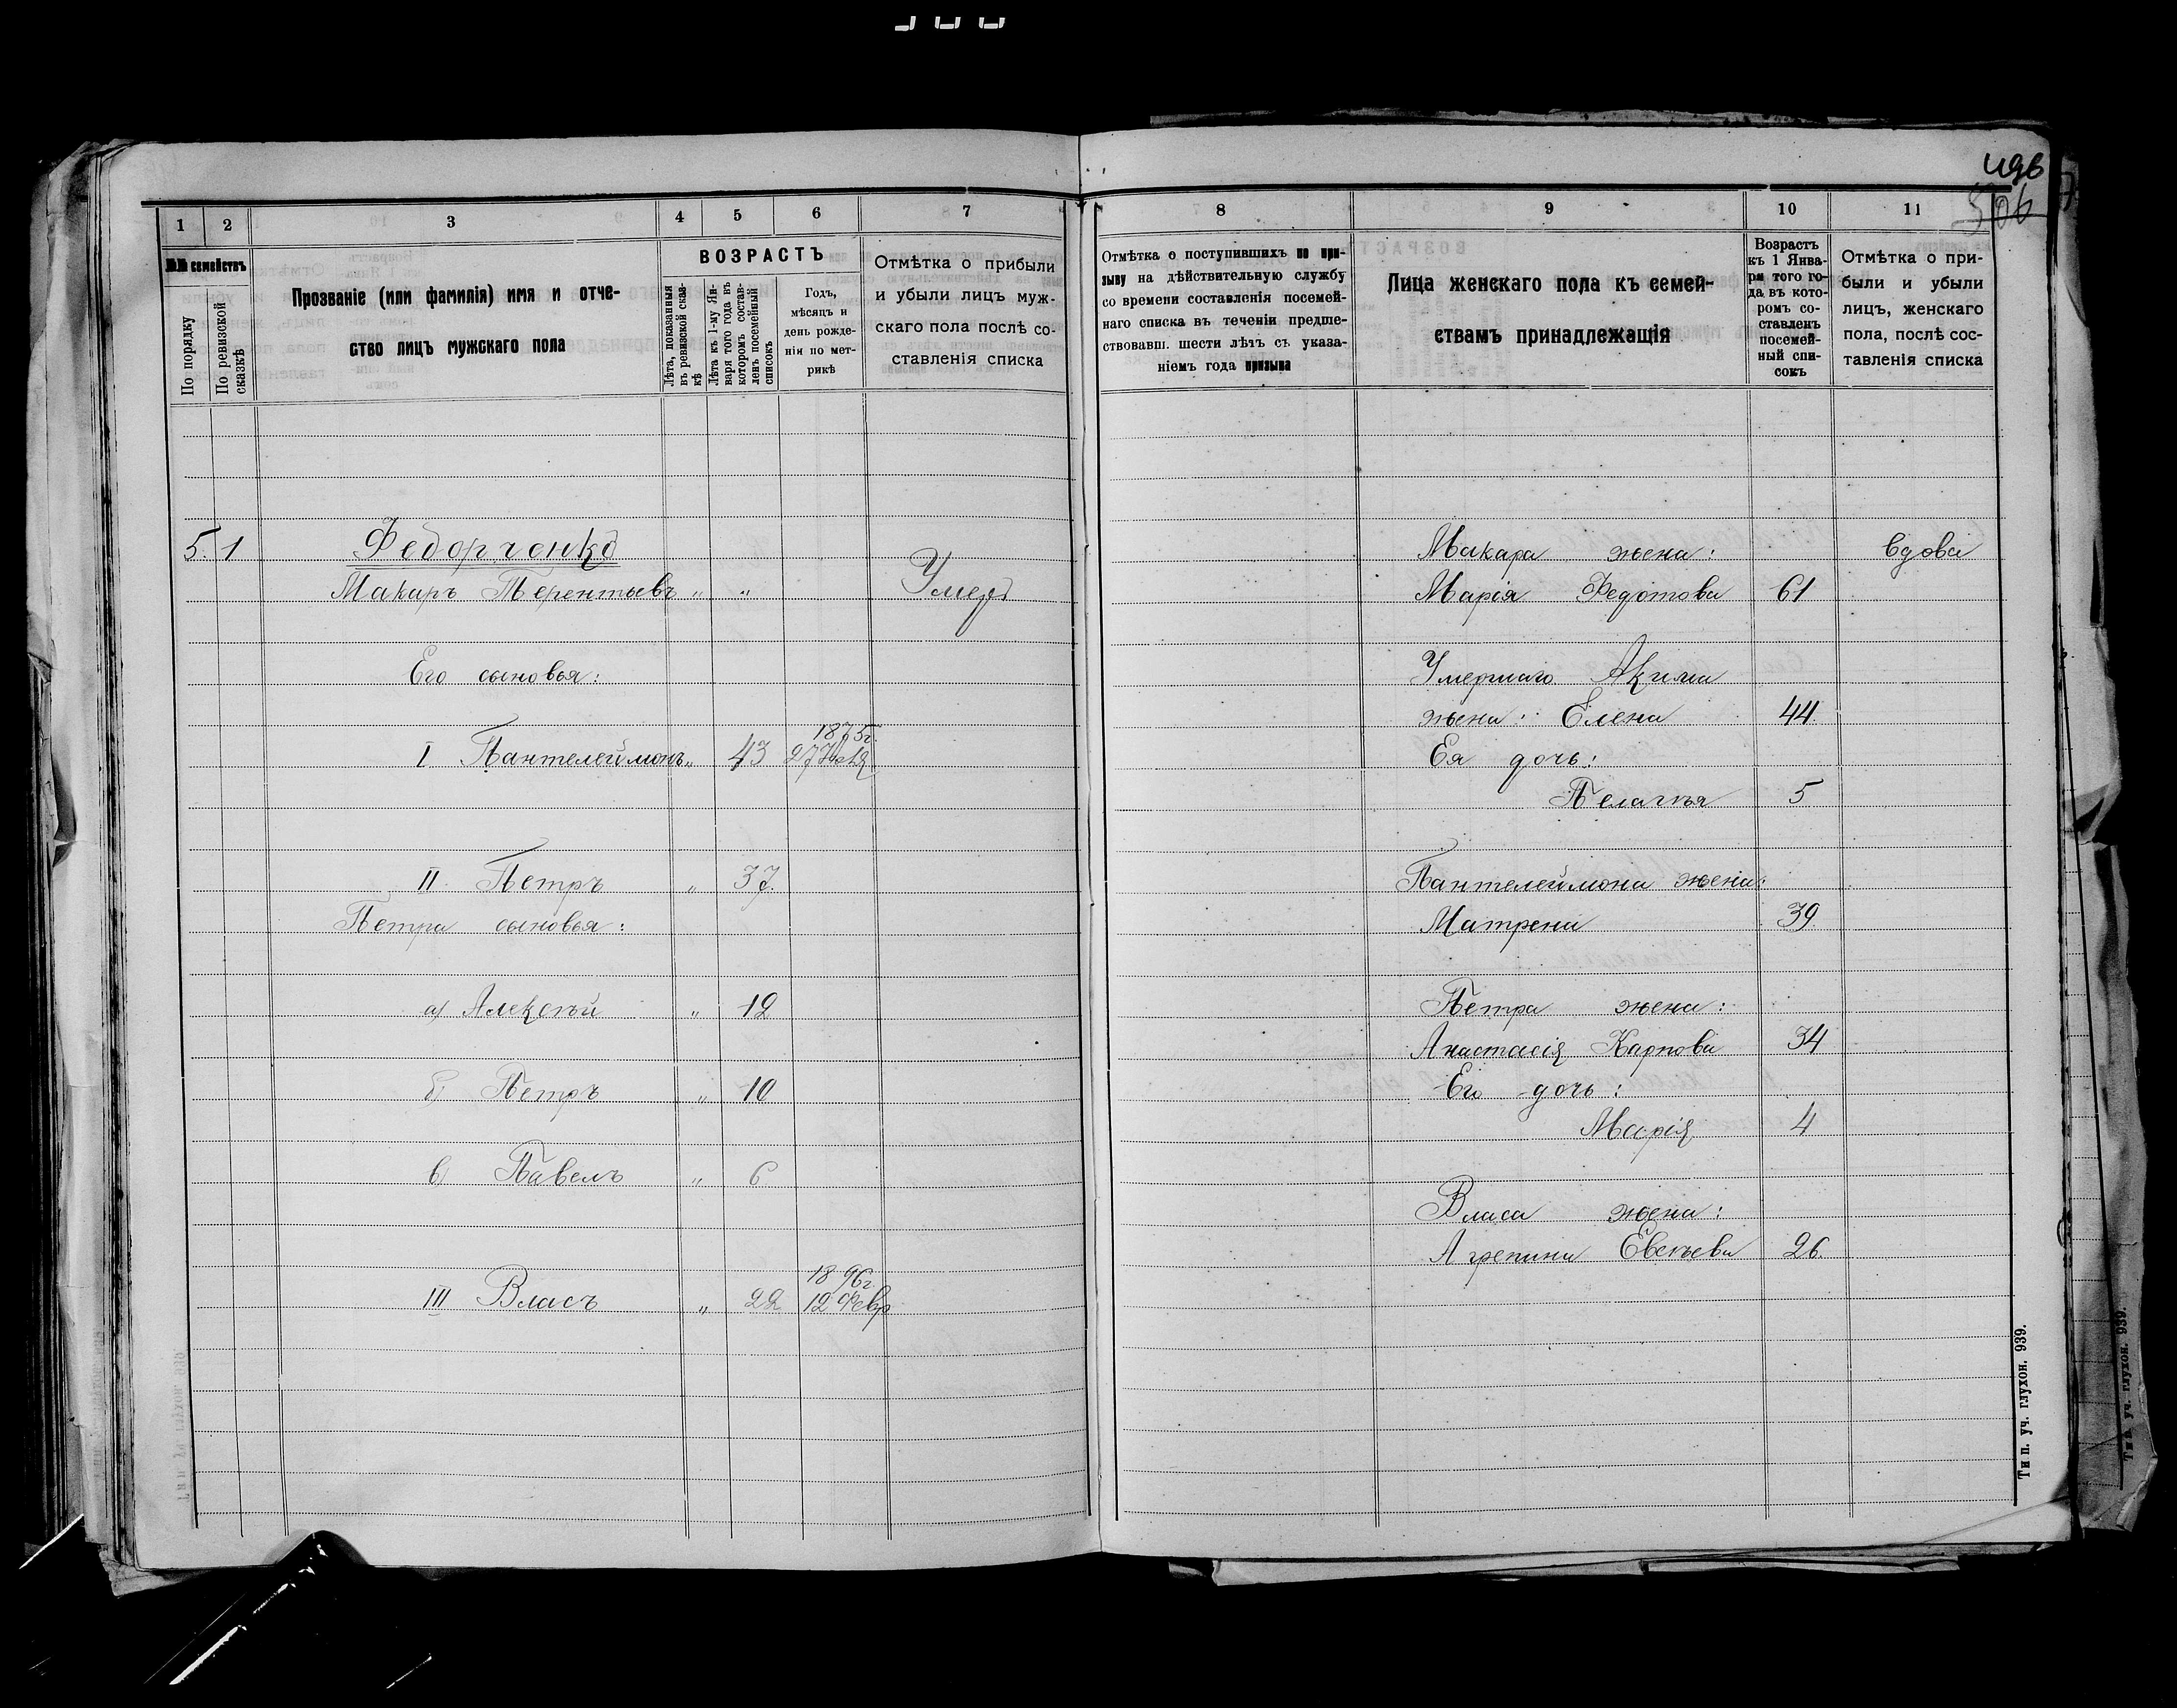 496
306
1 2 3 4 5 6 7
№№ семействъ
По порядку
По ревизской сказкѣ
Прозваніе (или фамилія) имя и отче-
ство лицъ мужскаго пола
ВОЗРАСТЪ
Лѣта, показанныя
въ ревизской сказ-
кѣ
Лѣта къ 1-му Ян-
варя того года въ
которомъ состав-
ленъ посемейный
списокъ
Годъ,
мѣсяцъ и
день рожде-
нія по мет-
рикѣ
Отмѣтка о прибыли
и убыли лицъ муж-
скаго пола послѣ со-
ставленія списка
5. 1 Федорченко
Макаръ Терентьевъ " " Умеръ
Его сыновья:
1875г.
I Пантелеймонъ " 43 27 Іюля
II Петръ " 37.
Петра сыновья:
а) Алексѣй " 12
б) Петръ " 10
в) Павелъ " 6
1896г.
III Власъ " 22 12 Февр
8 9 10 11
Отмѣтка о поступившихъ по при-
зыву на дѣйствительную службу
со времени составленія посемей-
наго списка въ теченіи предше-
ствовавш. шести лѣтъ съ указа-
ніемъ года призыва
Лица женскаго пола къ семей-
ствамъ принадлежащія
Возрастъ
къ 1 Янва-
ря того го-
да въ кото-
ромъ со-
ставленъ
посемей-
ный спи-
сокъ
Отмѣтка о при-
были и убыли
лицъ, женскаго
пола, послѣ сос-
тавленія списка
Макара жена: вдова
Марія Федотова 61
Умершаго Акима
жена: Елена 44.
Ея дочь:
Пелагія 5
Пантелеймона жена:
Матрена 39.
Петра жена:
Анастасія Карпова 34
Его дочь:
Марія 4
Власа жена:
Агрепина 26.
Тип. уч. глухон. 939.
Тип. уч. глухон. 939.